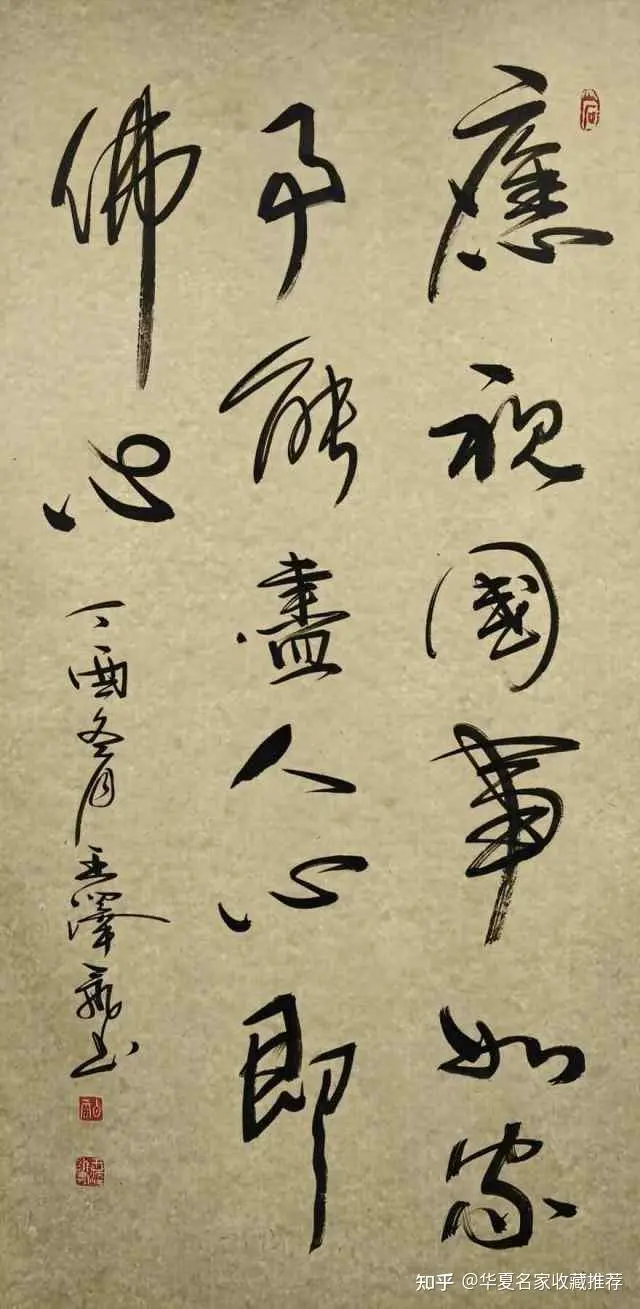 應視國事如家
事能盡人心即
佛心
丁酉冬月王澤飛书
知乎 @华夏名家收藏推荐